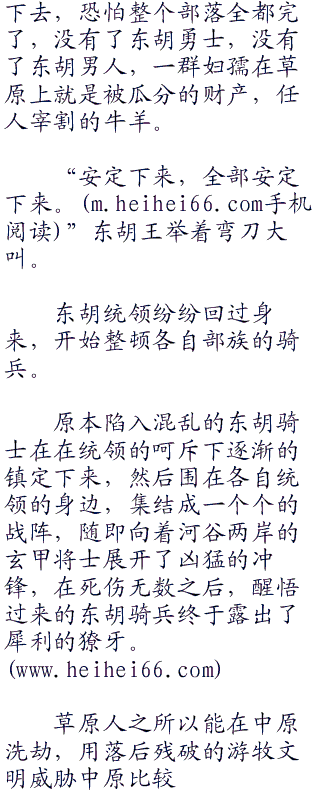 下去，恐怕整个部落全都完
了，没有了东胡勇士，没有
了东胡男人，一群妇孺在草
原上就是被瓜分的财产，任
人宰割的牛羊。
“安定下来，全部安定
下来。(m.heihei66.com手机
阅读)”东胡王举着弯刀大
叫。
东胡统领纷纷回过身
来，开始整顿各自部族的骑
兵。
原本陷入混乱的东胡骑
士在在统领的呵斥下逐渐的
镇定下来，然后围在各自统
领的身边，集结成一个个的
战阵，随即向着河谷两岸的
玄甲将士展开了凶猛的冲
锋，在死伤无数之后，醒悟
过来的东胡骑兵终于露出了
犀利的獠牙。
(www.heihei66.com)
草原人之所以能在中原
洗劫，用落后残破的游牧文
明威胁中原比较